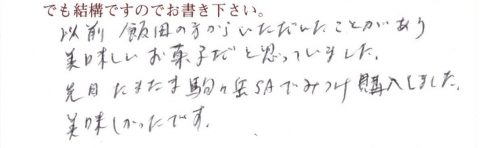 でも結構ですのでお書き下さい。
以前、飯田の方からいただいたことがあり
美味しいお菓子だと思っていました。
先日たまたま駒ヶ岳SAでみつけ購入しました。
美味しかったです。